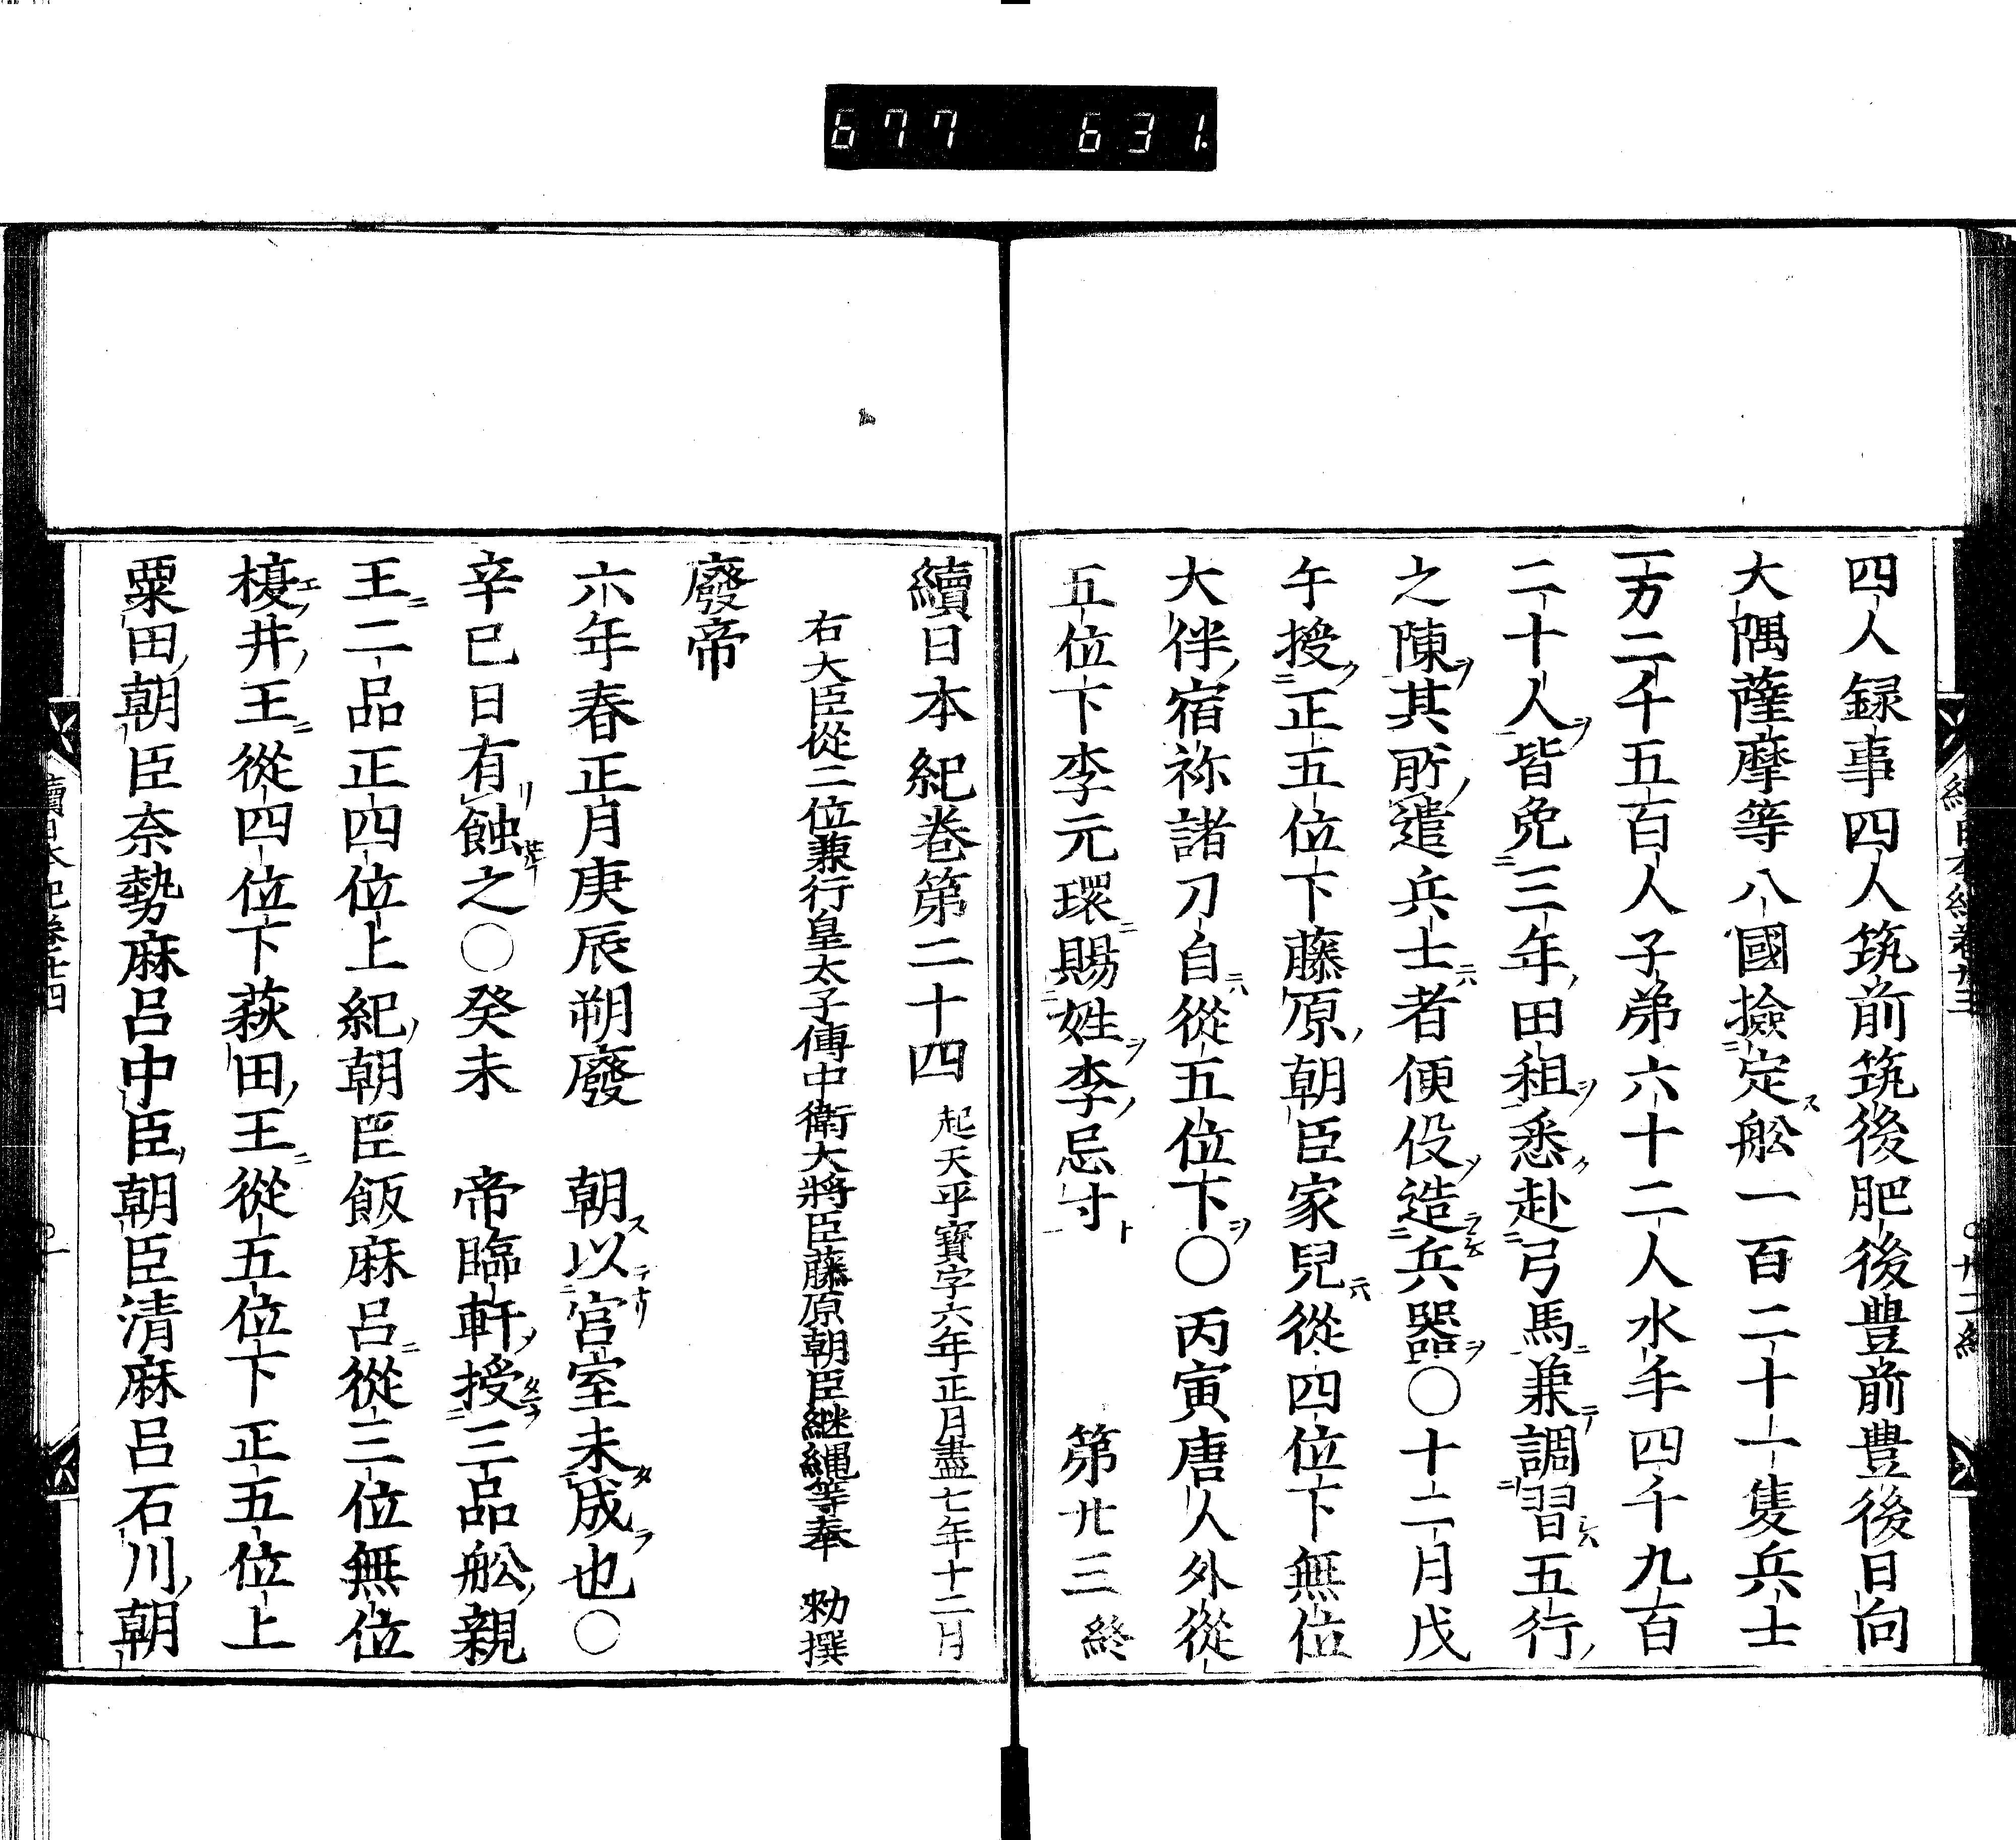 677 631.
四人録事四人筑前筑後肥後豊前豊後日向
大隅薩摩等八國撿定舩一百二十一隻兵士
一万二千五百人子弟六十二人水手四千九百
二十人皆免三年田租悉赴弓馬兼調習五行
之陳其所遣兵士者便役造兵器〇十二月戊
午授正五位下藤原朝臣家兒從四位下無位
大伴宿祢諸刀自從五位下〇丙寅唐人外從
五位下李元環賜姓李忌寸 第廿三終
續日本紀卷第二十四 起天平寶字六年正月盡七年十二月
右大臣從二位兼行皇太子傅中衛大將臣藤原朝臣継縄等奉 勅撰
廢帝
六年春正月庚辰朔廢 朝以宮室未成也〇
辛巳日有蝕之〇癸未 帝臨軒授三品舩親
王二品正四位上紀朝臣飯麻呂從三位無位
榎井王從四位下萩田王從五位下正五位上
粟田朝臣奈勢麻呂中臣朝臣清麻呂石川朝
續日本紀卷廿四 〇一